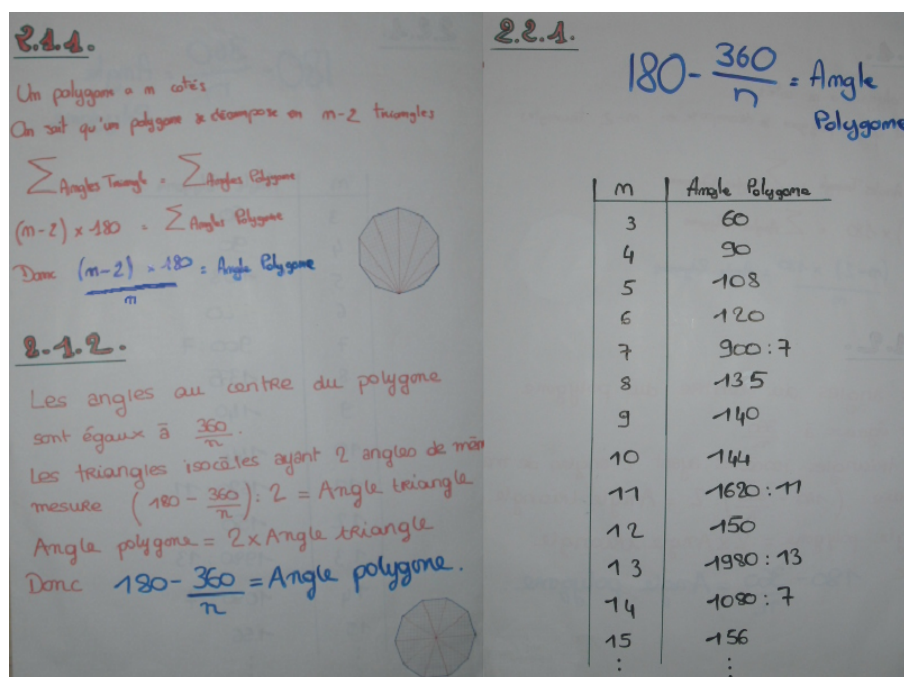 2.1.1.
Un polygone a n cotés
On sait qu'un polygone se décompose en n-2 triangles
∑ Angles Triangle = ∑ Angles Polygone
(n-2) x 180 = ∑ Angles Polygone
Donc (n-2) x 180 / n = Angle Polygone
2.1.2.
Les angles au centre du polygone
sont égaux à 360/n.
Les triangles isocèles ayant 2 angles de mêm
mesure (180 - 360/n) : 2 = Angle triangle
Angle polygone = 2 x Angle triangle
Donc 180 - 360/n = Angle polygone.
2.2.1.
180 - 360/n = Angle
Polygone
n | Angle Polygone
3 60
4 90
5 108
6 120
7 900 : 7
8 135
9 140
10 144
11 1620 : 11
12 150
13 1980 : 13
14 1080 : 7
15 156
⋮ ⋮